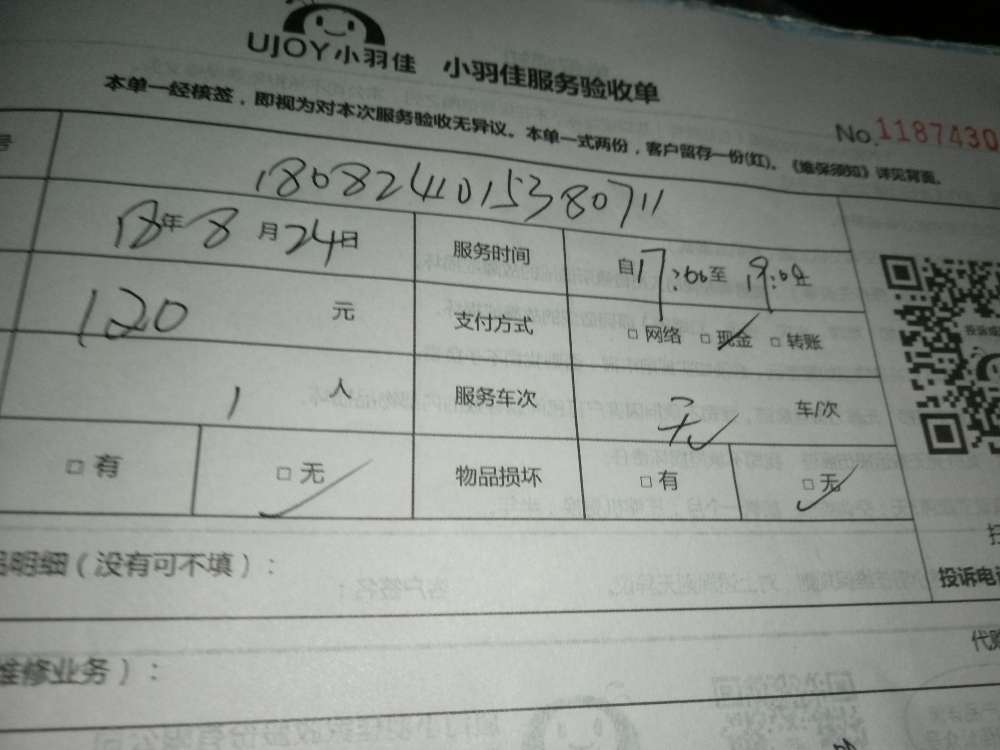 UJOY小羽佳 小羽佳服务验收单
本单一经核签，即视为对本次服务验收无异议。本单一式两份，客户留存一份(红)。《维保须知》详见背面。
No.1187430
号 1808241015380711
18年8月24日 服务时间 自17:00至19:00
120 元 支付方式 □网络 □现金 □转账
1 人 服务车次 无 车/次
□有 □无 物品损坏 □有 □无
明细（没有可不填）：
投诉电
维修业务）：
代